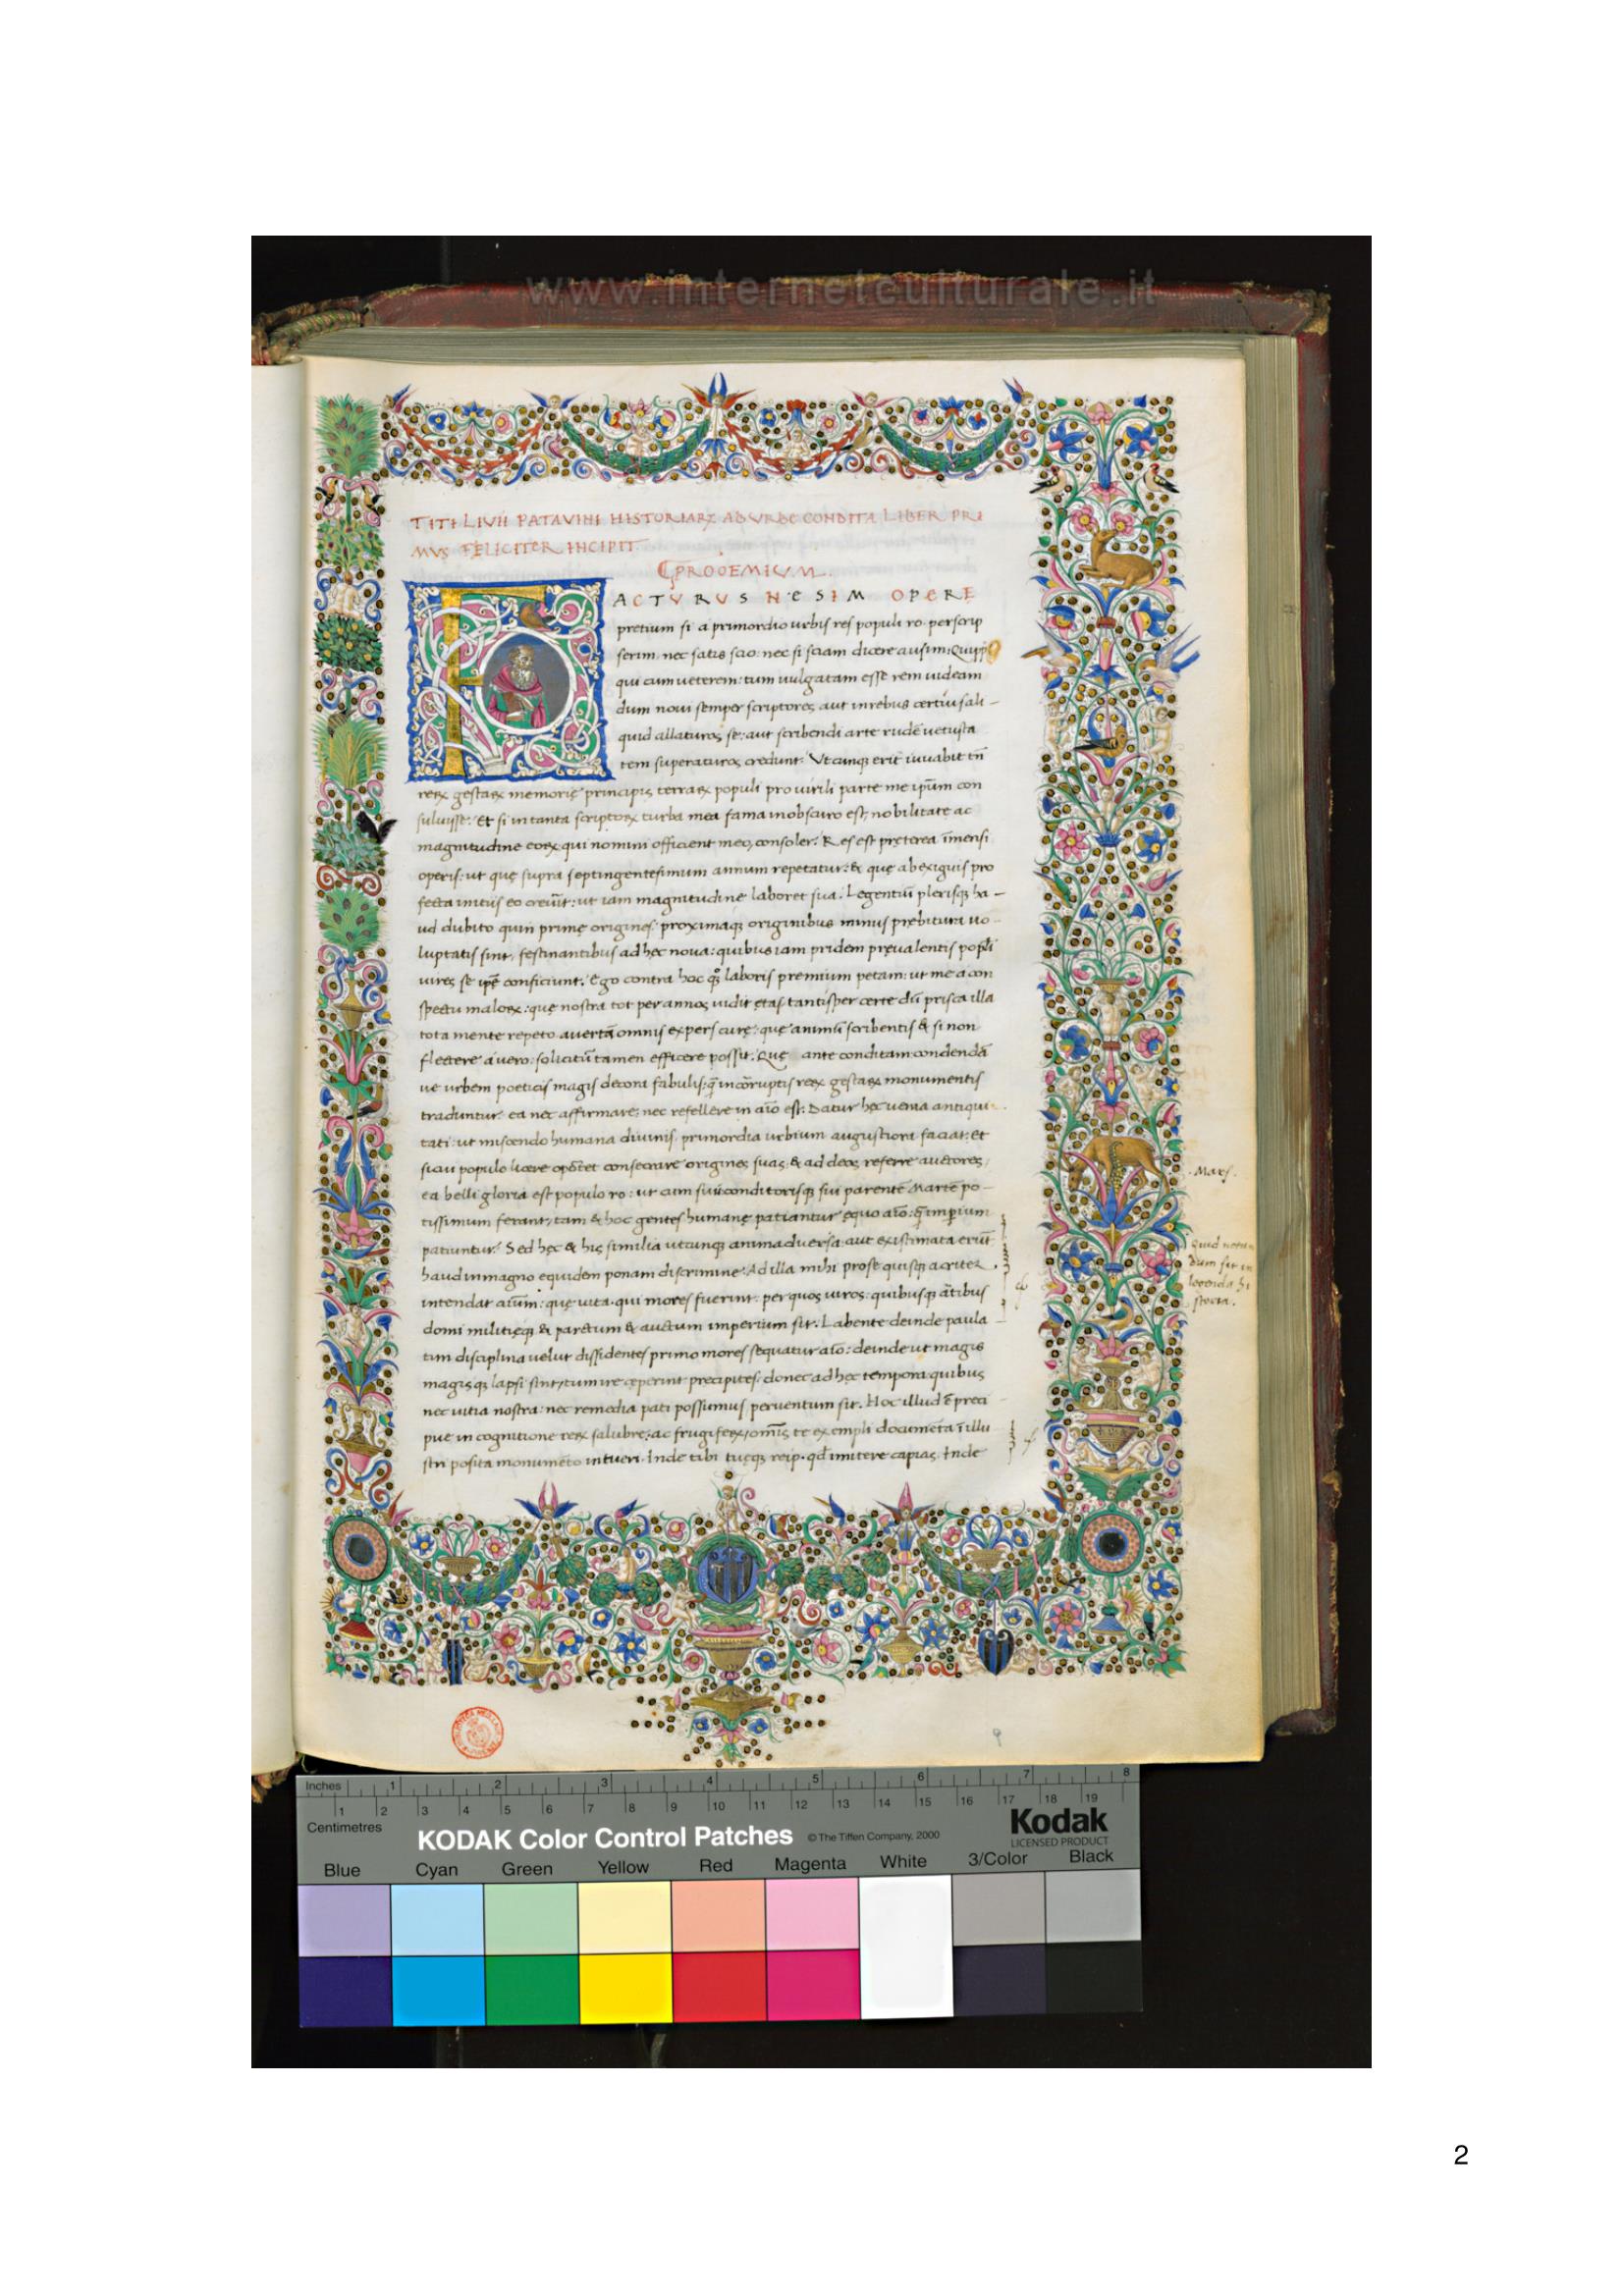 www.internetculturale.it
TITI LIVII PATAVINI HISTORIARꝜ AB VRBE CONDITA LIBER PRI
MVS FELICITER INCIPIT
PROOEMIUM.
ACTURUS NE SIM OPERE
pretium si a primordio urbis res populi ro. perscrip
serim. nec satis scio: nec si sciam dicere ausim: Quipp
qui cum ueterem: tum uulgatam esse rem uideam
dum noui semper scriptores aut in rebus certius ali-
quid allaturos se: aut scribendi arte rudē uetusta
tem superaturos credunt. Vtcunq; erit iuuabit tn̄
rerꝝ gestarꝝ memorię principis terrarꝝ populi pro uirili parte me ipm̄ con
suluisse. Et si in tanta scriptorꝝ turba mea fama in obscuro est, nobilitate ac
magnitudine eorꝝ qui nomini officient meo, consoler. Res est pręterea īmensi
operis: ut quę supra septingentesimum annum repetatur: & quę ab exiguis pro
fecta initiis eo creuit: ut iam magnitudine laboret sua. Legentiū plerisq; ha-
ud dubito quin primę origines: proximaq; originibus minus prębitura uo
luptatis sint, festinantibus ad hęc noua: quibus iam pridem pręualentis popli
uires se ipē conficiunt. Ego contra hoc qq̊ laboris premium petam: ut me a con
spectu malorꝝ: quę nostra tot per annos uidit ętas tantisper certe dū prisca illa
tota mente repeto auertā omnis expers curę: quę animū scribentis & si non
flectere a uero: solicitū tamen efficere possit. Quę ante conditam condendā
ue urbem poeticis magis decora fabulis: q̄ incorruptis rerꝝ gestarꝝ monumentis
traduntur ea nec affirmare: nec refellere in aīo est. Datur hęc uenia antiqui
tati: ut miscendo humana diuinis, primordia urbium augustiora faciat. Et
sicui populo licere opōtet consecrare origines suas, & ad deos referre auctores,
ea belli gloria est populo ro: ut cum sui conditorisq; sui parentē Martē po-
tissimum ferant, tam & hoc gentes humanę patiantur ęquo aīo: q̄ imperium
patiuntur. Sed hęc & his similia utcunq; animaduersa aut existimata erūt
haud in magno equidem ponam discrimine. Ad illa mihi pro se quisq; acriter
intendat aīum: quę uita. qui mores fuerint. per quos uiros: quibusq; ātibus
domi militięq; & partum & auctum imperium sit. Labente deinde paula
tim disciplina uelut dissidentes primo mores sequatur aīo: deinde ut magis
magisq; lapsi sint, tum ire cęperint precipites: donec ad hęc tempora quibus
nec uitia nostra: nec remedia pati possumus peruentum sit. Hoc illud ē preci
pue in cognitione rerꝝ salubre: ac frugiferꝝ, omīs te exempli documēta ī illu
stri posita monumēto intueri. Inde tibi tuęq; reip. qd̄ imitere capias. Inde
Mars.
Quid notan
dum sit in
legenda hi
storia.
Inches 1 2 3 4 5 6 7 8
1 2 3 4 5 6 7 8 9 10 11 12 13 14 15 16 17 18 19
Centimetres
KODAK Color Control Patches © The Tiffen Company, 2000
Kodak
LICENSED PRODUCT
Blue Cyan Green Yellow Red Magenta White 3/Color Black
2